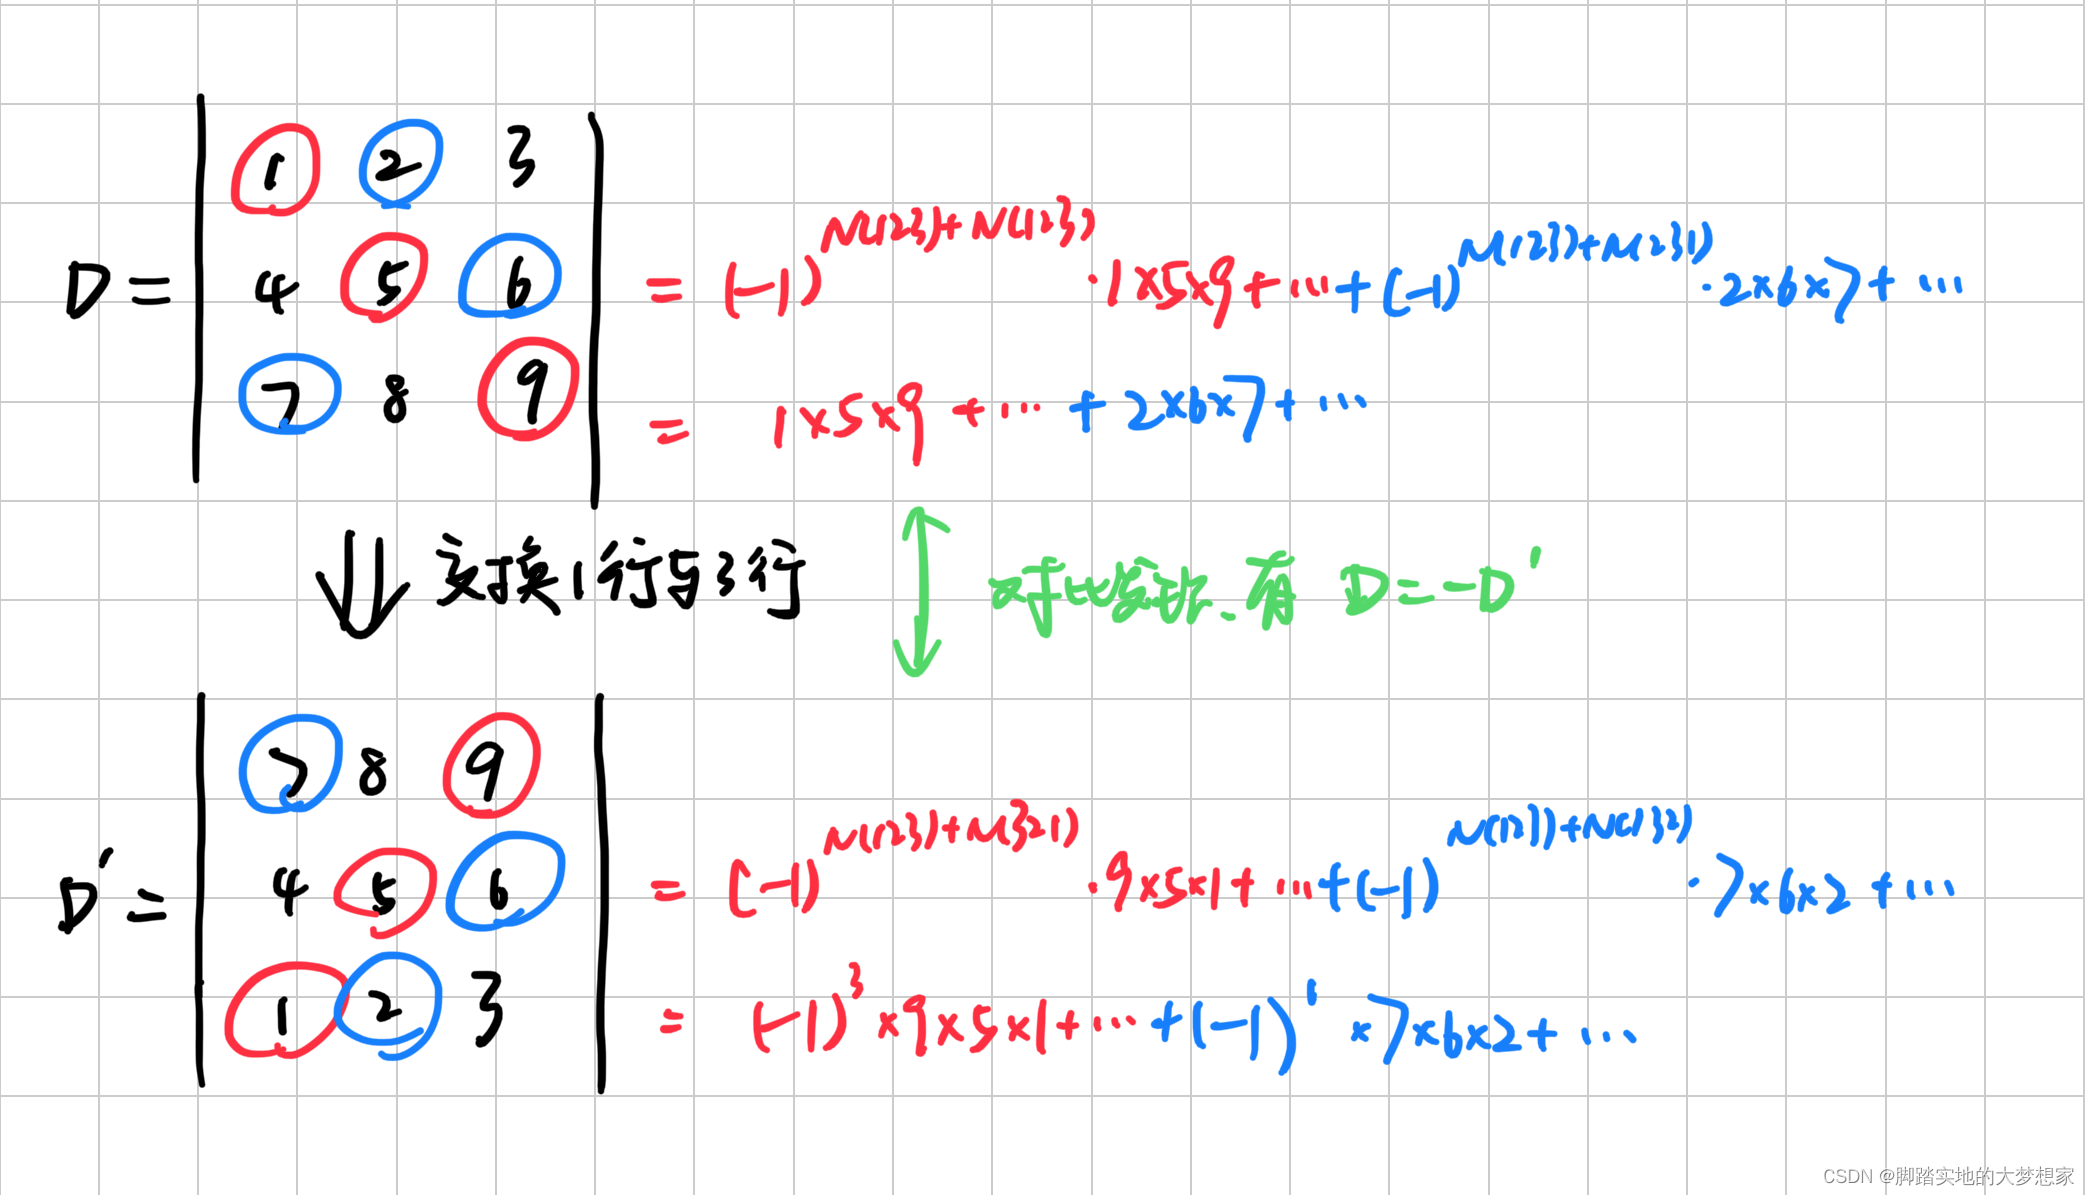 1 2 3
D = 4 5 6 = (-1)^{N(123)+N(123)} · 1×5×9 + … + (-1)^{N(123)+N(231)} · 2×6×7 + …
7 8 9 = 1×5×9 + … + 2×6×7 + …
交换1行与3行
对比发现、有 D = -D'
7 8 9
D' = 4 5 6 = (-1)^{N(123)+N(321)} · 9×5×1 + … + (-1)^{N(123)+N(132)} · 7×6×2 + …
1 2 3 = (-1)^3 ×9×5×1 + … + (-1)^1 ×7×6×2 + …
CSDN @脚踏实地的大梦想家